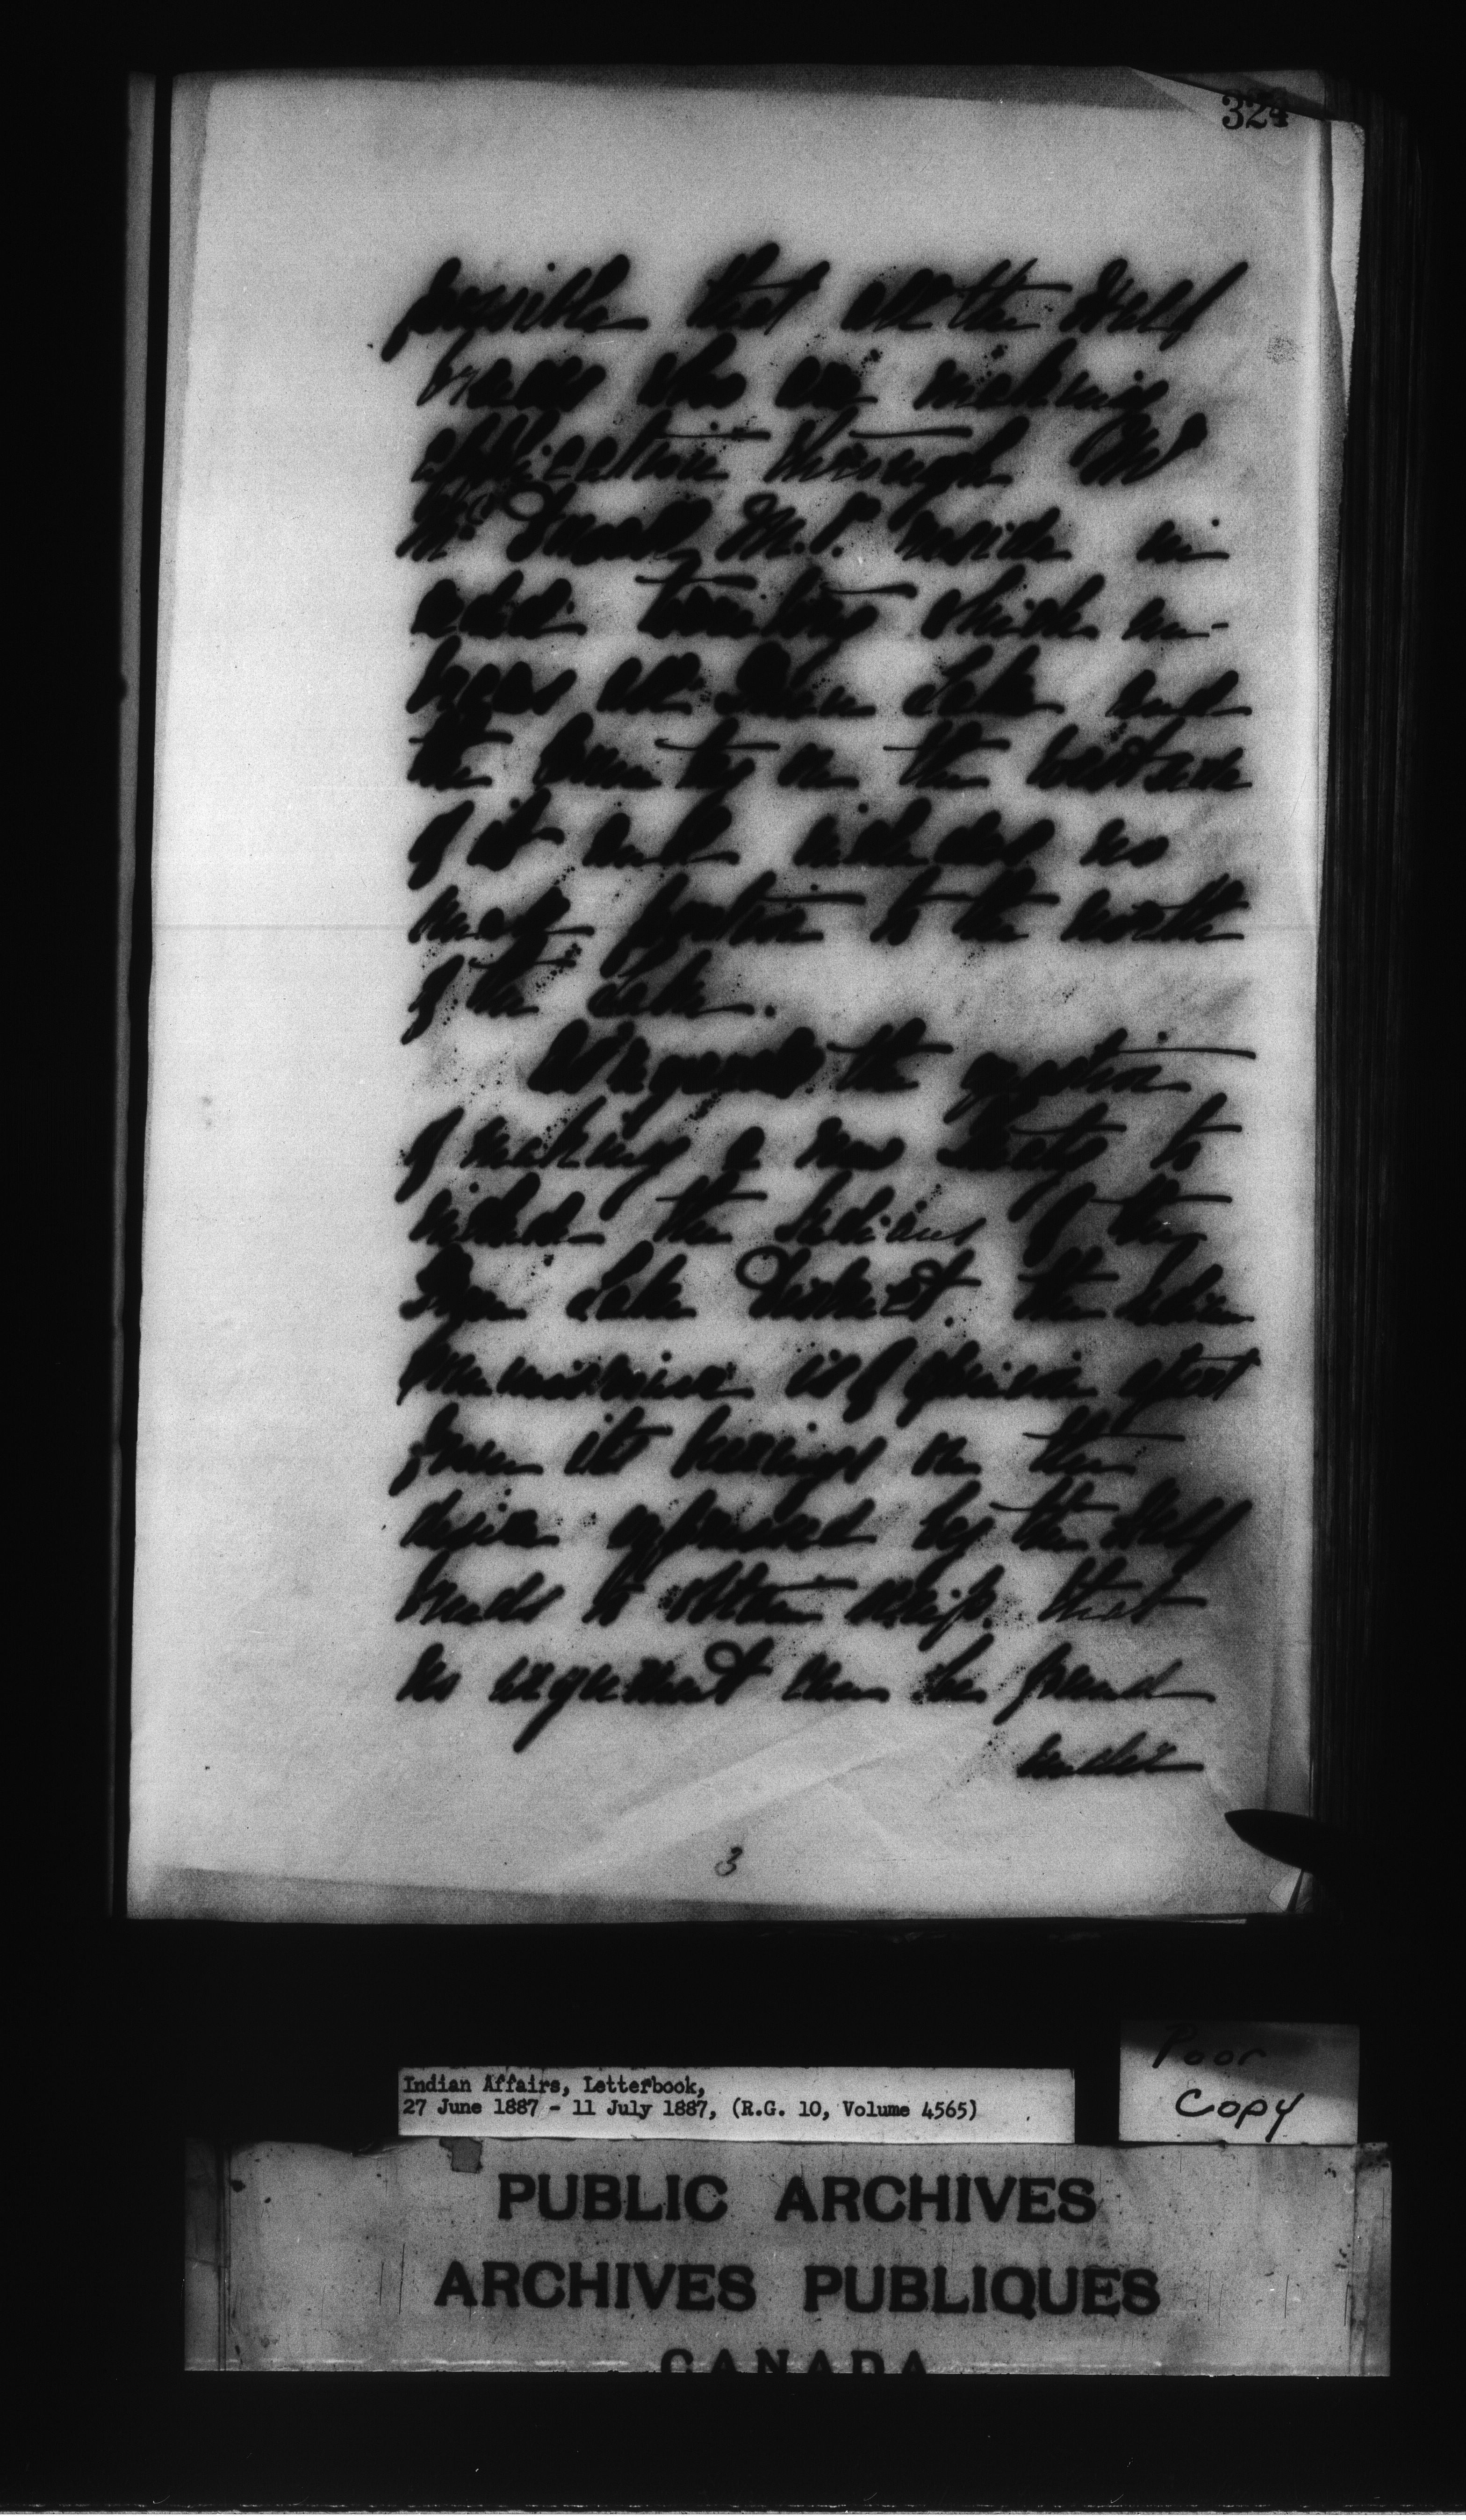 324
possible that all the Half
breeds who are making
application through Mr
McDowall, M.P. reside in
ceded territory which em-
braces all Lake and
the country on the
of it and includes as
much portion to the north
of the Lake.
As regards the question
of making a new Treaty to
include the Indians of the
Lake District. the Indian
Commissioner is of opinion apart
from its bearings on the
desire expressed by the Half
breeds to obtain scrip. that
no argument can be found
under
3
Poor
Copy
Indian Affairs, Letterbook,
27 June 1887 - 11 July 1887, (R.G. 10, Volume 4565)
PUBLIC ARCHIVES
ARCHIVES PUBLIQUES
CANADA